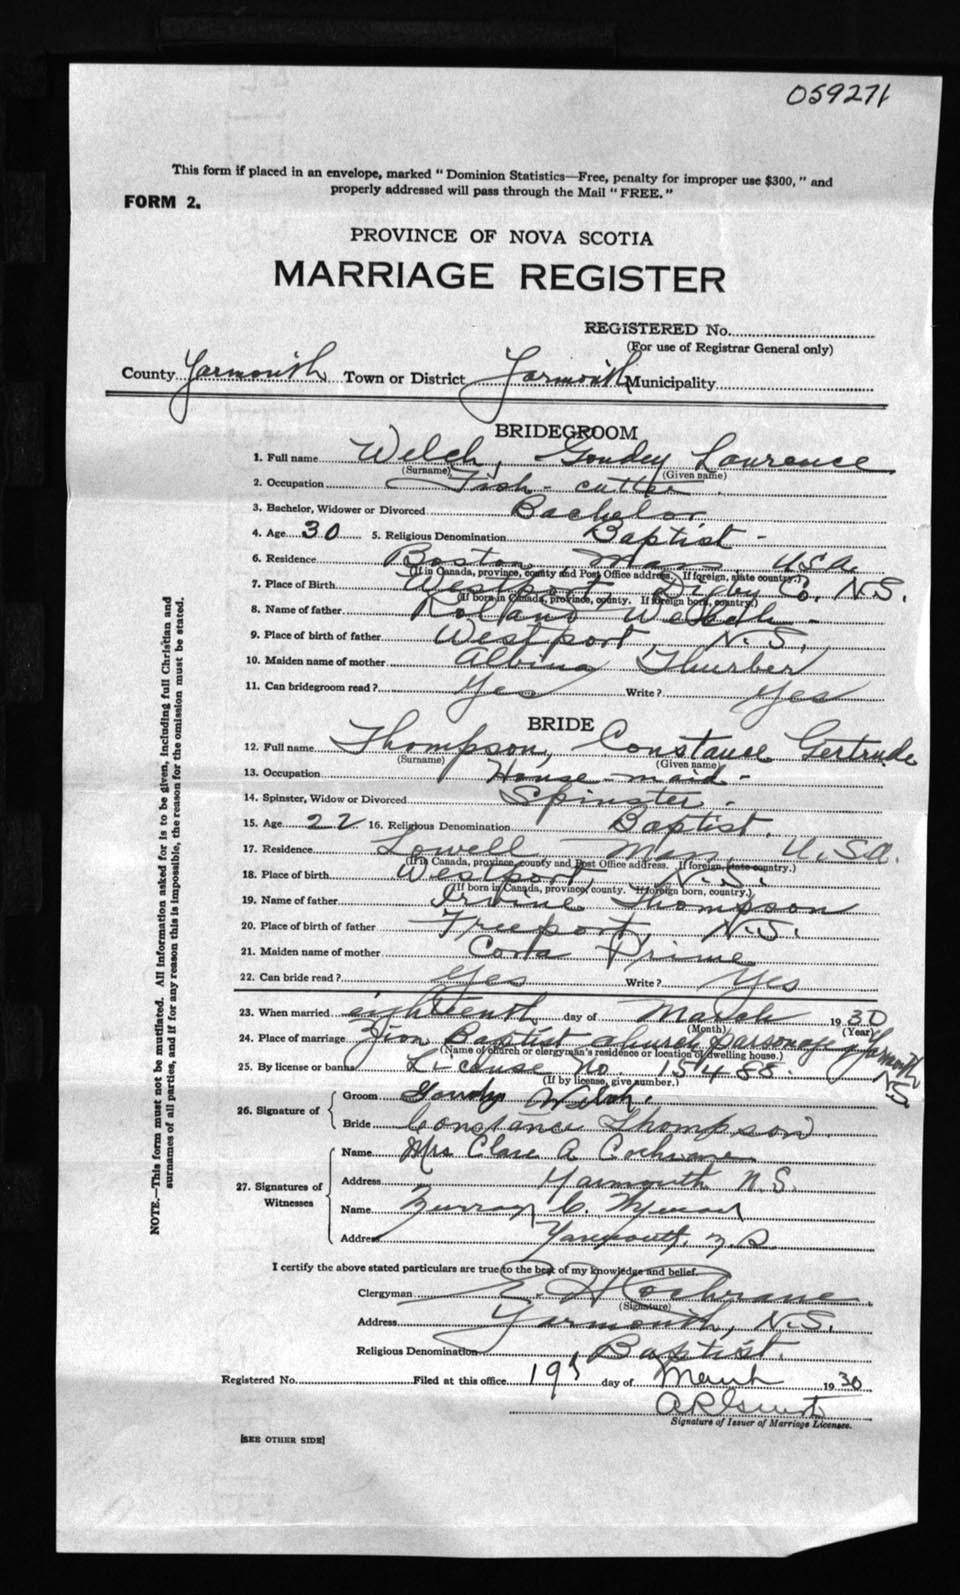 059271
This form if placed in an envelope, marked " Dominion Statistics—Free, penalty for improper use $300, " and
properly addressed will pass through the Mail " FREE. "
FORM 2.
PROVINCE OF NOVA SCOTIA
MARRIAGE REGISTER
REGISTERED No.
(For use of Registrar General only)
County Yarmouth Town or District Yarmouth Municipality
BRIDEGROOM
1. Full name Welch, Goudey Lawrence
(Surname) (Given name)
2. Occupation Fish-cutter
3. Bachelor, Widower or Divorced Bachelor
4. Age 30 5. Religious Denomination Baptist -
6. Residence Boston, Mass U.S.A.
(If in Canada, province, county and Post Office address. If foreign, state country.)
7. Place of Birth Westport, Digby Co. N.S.
(If born in Canada, province, county. If foreign born, country.)
8. Name of father Roland Welch -
9. Place of birth of father Westport N.S.
10. Maiden name of mother Albina Thurber
11. Can bridegroom read? Yes Write? Yes
BRIDE
12. Full name Thompson, Constance Gertrude
(Surname) (Given name)
13. Occupation House-maid -
14. Spinster, Widow or Divorced Spinster -
15. Age 22 16. Religious Denomination Baptist.
17. Residence Lowell Mass, U.S.A.
(If in Canada, province, county and Post Office address. If foreign, state country.)
18. Place of birth Westport, N.S.
(If born in Canada, province, county. If foreign born, country.)
19. Name of father Irvine Thompson
20. Place of birth of father Freeport, N.S.
21. Maiden name of mother Cora Prime
22. Can bride read? Yes Write? Yes
23. When married eighteenth day of March 1930
(Month) (Year)
24. Place of marriage Zion Baptist church parsonage Yarmouth NS
(Name of church or clergyman's residence or location of dwelling house.)
25. By license or banns License No. 15488.
(If by license, give number.)
26. Signature of
Groom Goudey Welch.
Bride Constance Thompson
27. Signatures of Witnesses
Name Mrs Clare A Cochrane
Address Yarmouth N.S.
Name Murray C.
Address Yarmouth, N.S.
I certify the above stated particulars are true to the best of my knowledge and belief.
Clergyman E. H Cochrane
(Signature)
Address Yarmouth, N.S.
Religious Denomination Baptist.
Registered No. Filed at this office 19 day of March 1930
Signature of Issuer of Marriage Licenses.
[SEE OTHER SIDE]
NOTE.—This form must not be mutilated. All information asked for is to be given, including full Christian and
surnames of all parties, and if for any reason this is impossible, the reason for the omission must be stated.